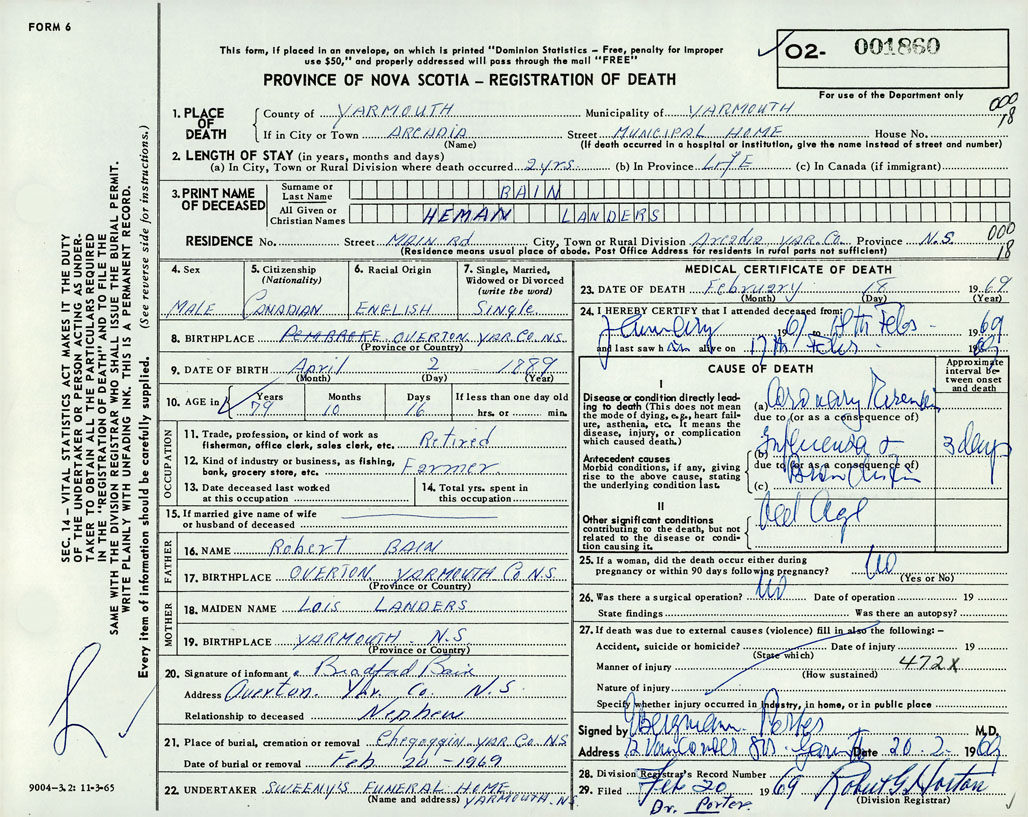 FORM 6
This form, if placed in an envelope, on which is printed "Dominion Statistics – Free, penalty for improper
use $50," and properly addressed will pass through the mail "FREE"
PROVINCE OF NOVA SCOTIA – REGISTRATION OF DEATH
O2- 001860
For use of the Department only
000
18
1. PLACE OF DEATH
County of YARMOUTH Municipality of YARMOUTH
If in City or Town ARCADIA Street MUNICIPAL HOME House No.
(Name) (If death occurred in a hospital or institution, give the name instead of street and number)
2. LENGTH OF STAY (in years, months and days)
(a) In City, Town or Rural Division where death occurred 2 yrs. (b) In Province LIFE (c) In Canada (if immigrant)
3. PRINT NAME OF DECEASED
Surname or Last Name BAIN
All Given or Christian Names HEMAN LANDERS
RESIDENCE No. Street MAIN Rd City, Town or Rural Division Arcadia YAR. Co. Province N.S.
(Residence means usual place of abode. Post Office Address for residents in rural parts not sufficient)
000
18
4. Sex
MALE
5. Citizenship (Nationality)
CANADIAN
6. Racial Origin
ENGLISH
7. Single, Married, Widowed or Divorced (write the word)
Single.
8. BIRTHPLACE OVERTON YAR. CO. N.S.
(Province or Country)
9. DATE OF BIRTH April 2 1889
(Month) (Day) (Year)
10. AGE in Years 79 Months 10 Days 16 If less than one day old hrs. or min.
OCCUPATION
11. Trade, profession, or kind of work as fisherman, office clerk, sales clerk, etc. Retired
12. Kind of industry or business, as fishing, bank, grocery store, etc. Farmer
13. Date deceased last worked at this occupation
14. Total yrs. spent in this occupation
15. If married give name of wife or husband of deceased
FATHER
16. NAME Robert BAIN
17. BIRTHPLACE OVERTON YARMOUTH Co N.S.
(Province or Country)
MOTHER
18. MAIDEN NAME LOIS LANDERS
19. BIRTHPLACE YARMOUTH N.S
(Province or Country)
20. Signature of informant Bradford Bain
Address Overton. Yar. Co. N.S.
Relationship to deceased Nephew
21. Place of burial, cremation or removal Chegoggin YAR. Co. NS
Date of burial or removal Feb 20 - 1969
22. UNDERTAKER SWEENY'S FUNERAL HOME
(Name and address) YARMOUTH. NS.
MEDICAL CERTIFICATE OF DEATH
23. DATE OF DEATH February 18 1969
(Month) (Day) (Year)
24. I HEREBY CERTIFY that I attended deceased from:
January 19 to Feb 1969
and last saw him alive on 17th Feb 19
CAUSE OF DEATH
Approximate interval between onset and death
I
Disease or condition directly leading to death (This does not mean the mode of dying, e.g., heart failure, asthenia, etc. It means the disease, injury, or complication which caused death.)
(a) Coronary
due to (or as a consequence of)
Antecedent causes
Morbid conditions, if any, giving rise to the above cause, stating the underlying condition last.
(b) Influenza + 3 days
due to (or as a consequence of)
(c)
II
Other significant conditions
contributing to the death, but not related to the disease or condition causing it.
Old Age
25. If a woman, did the death occur either during pregnancy or within 90 days following pregnancy? No
(Yes or No)
26. Was there a surgical operation? No Date of operation 19
State findings Was there an autopsy?
27. If death was due to external causes (violence) fill in also the following: –
Accident, suicide or homicide? Date of injury 19
(State which)
Manner of injury 472X
(How sustained)
Nature of injury
Specify whether injury occurred in industry, in home, or in public place
Signed by Bergmann Porter M.D.
Address Date 20-2-1969
28. Division Registrar's Record Number
29. Filed Feb 20 1969 Robert G. Horton
(Division Registrar)
Dr. Porter.
SEC. 14 – VITAL STATISTICS ACT MAKES IT THE DUTY
OF THE UNDERTAKER OR PERSON ACTING AS UNDER-
TAKER TO OBTAIN ALL THE PARTICULARS REQUIRED
IN THE "REGISTRATION OF DEATH" AND TO FILE THE
SAME WITH THE DIVISION REGISTRAR WHO SHALL ISSUE THE BURIAL PERMIT.
WRITE PLAINLY WITH UNFADING INK. THIS IS A PERMANENT RECORD.
Every item of information should be carefully supplied. (See reverse side for instructions.)
9004-3.2: 11-3-65